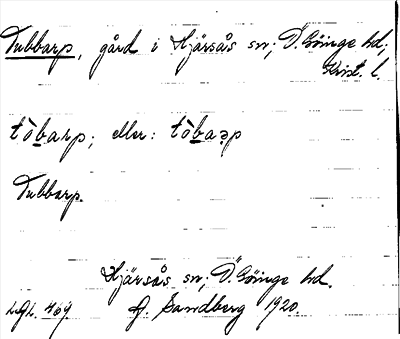 Tubbarp, gård i Hjärsås sn; Ö. Göinge hd;
Krist. l.
tòbarp; eller: tòbaəp
Tubbarp.
Hjärsås sn; Ö. Göinge hd.
LGL. 469. G. Sandberg 1920.